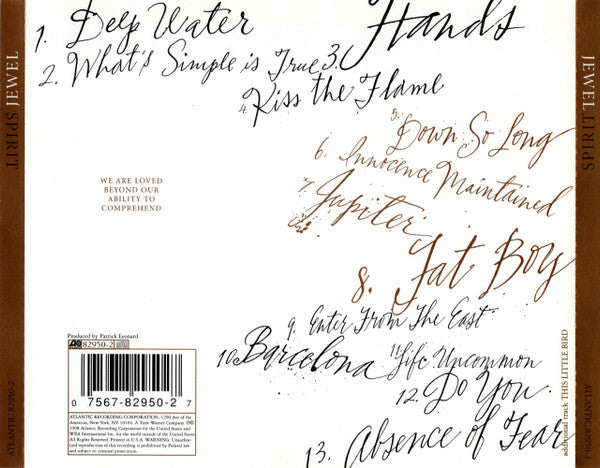 JEWEL SPIRIT
ATLANTIC 82950-2
1. Deep Water
2. What's Simple is True
3. Hands
4. Kiss the Flame
5. Down So Long
6. Innocence Maintained
7. Jupiter
8. Fat Boy
9. Enter From The East
10. Barcelona
11. Life Uncommon
12. Do You
13. Absence of Fear
additional track THIS LITTLE BIRD
WE ARE LOVED
BEYOND OUR
ABILITY TO
COMPREHEND
Produced by Patrick Leonard
82950-2
0 7567-82950-2 7
ATLANTIC RECORDING CORPORATION, 1290 Ave of the
Americas, New York, NY 10104. A Time Warner Company.
1998 Atlantic Recording Corporation for the United States and
WEA International Inc. for the world outside of the United States.
All Rights Reserved. Printed in U.S.A. WARNING: Unauthor-
ized reproduction of this recording is prohibited by Federal law
and subject to criminal prosecution.
JEWEL SPIRIT
ATLANTIC 82950-2